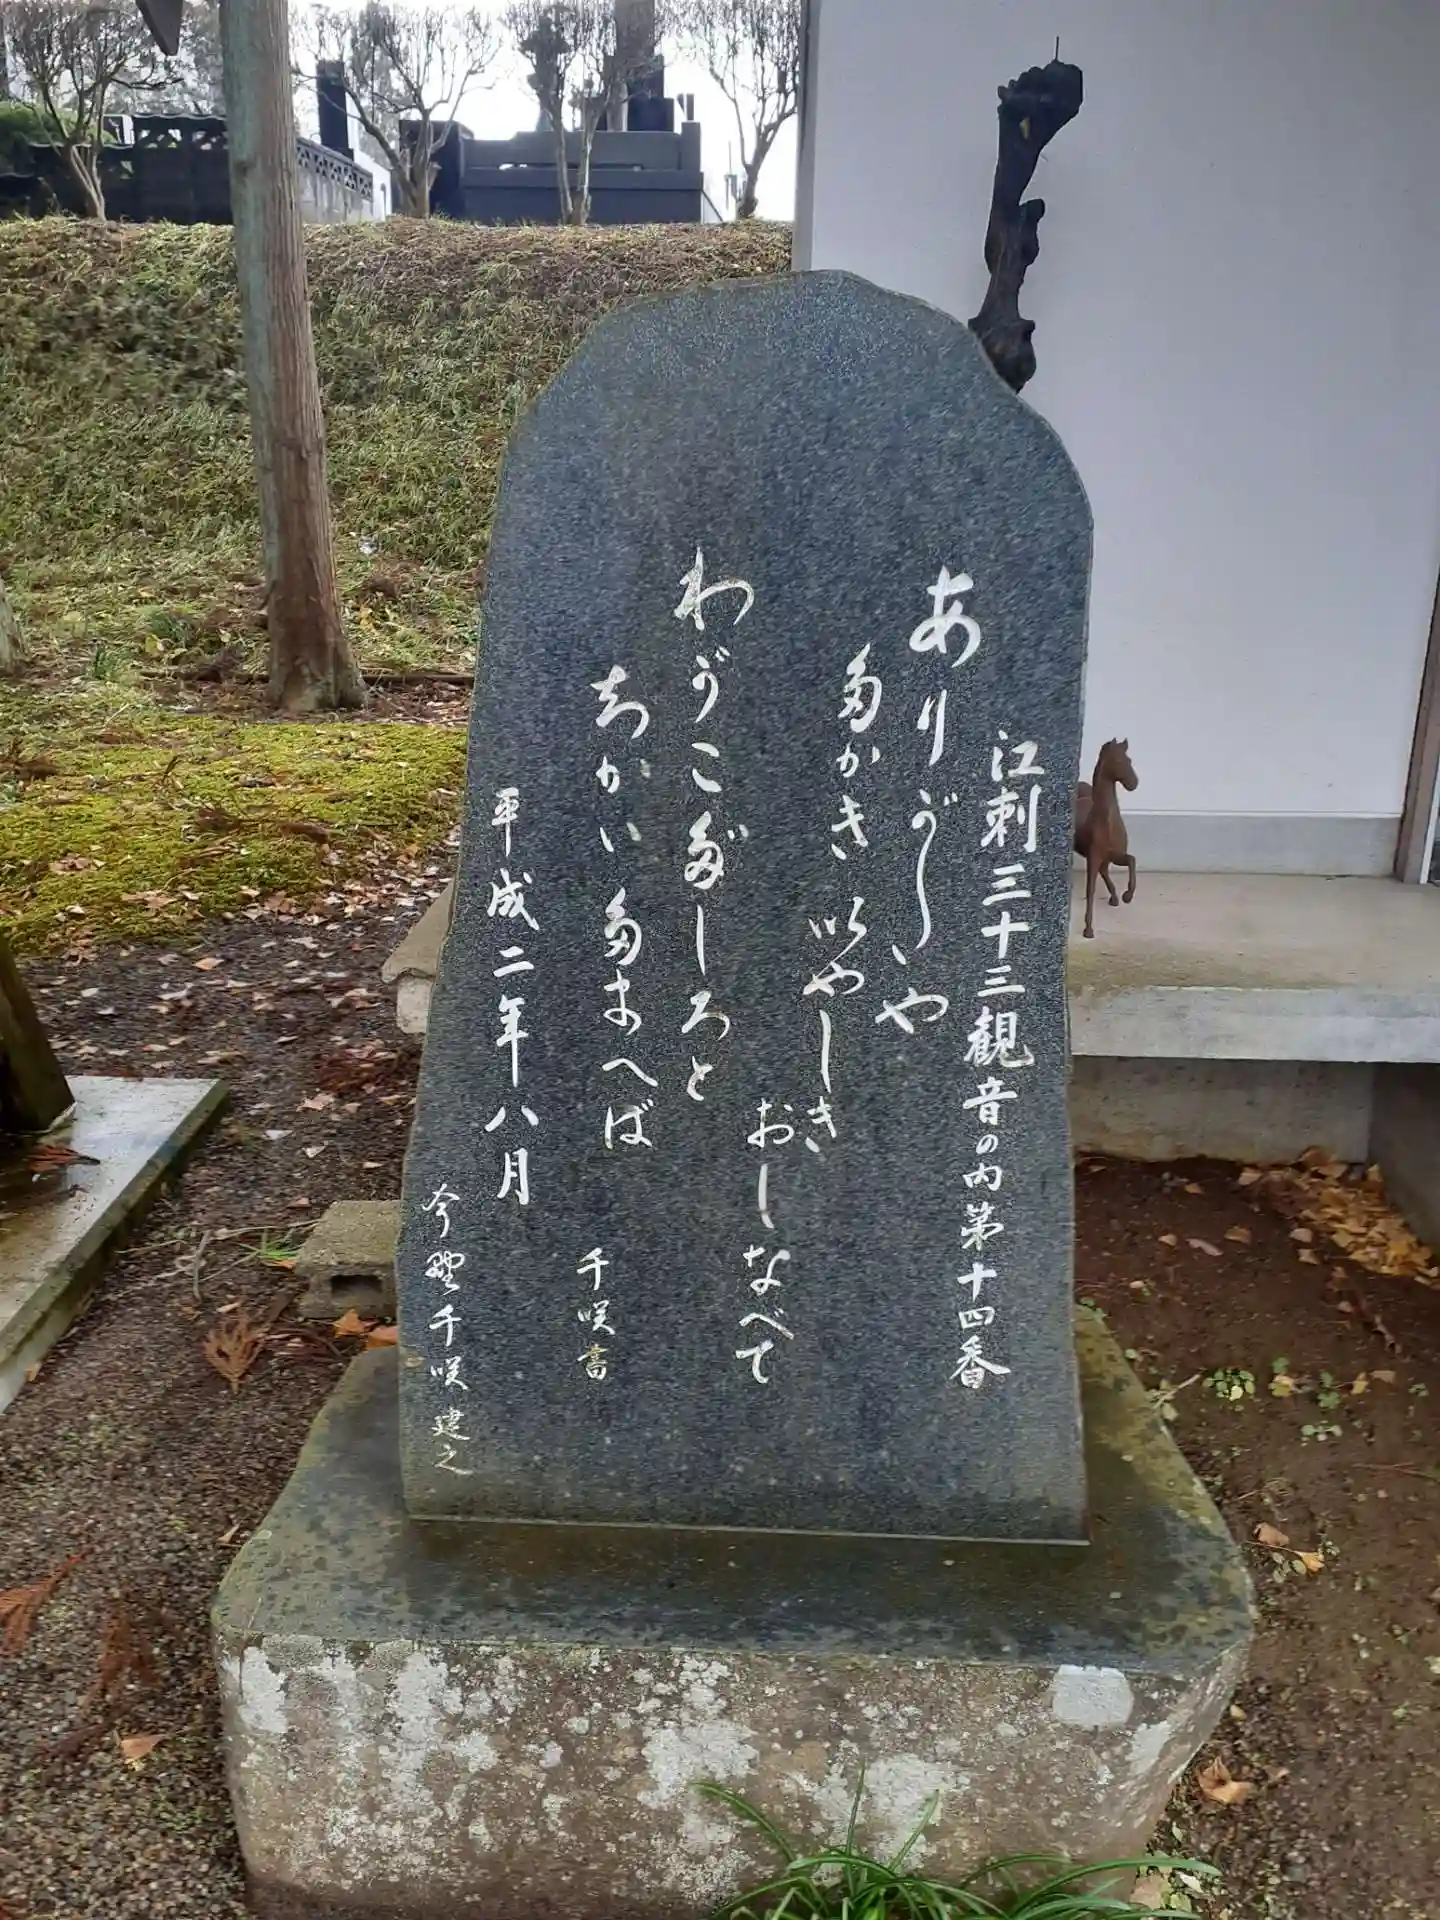 江刺三十三観音の内第十四番
ありがしや
多かき以やしき
おしなべて
わがこだしろと
ちかい多まへば
千咲書
平成二年八月
今野千咲建之